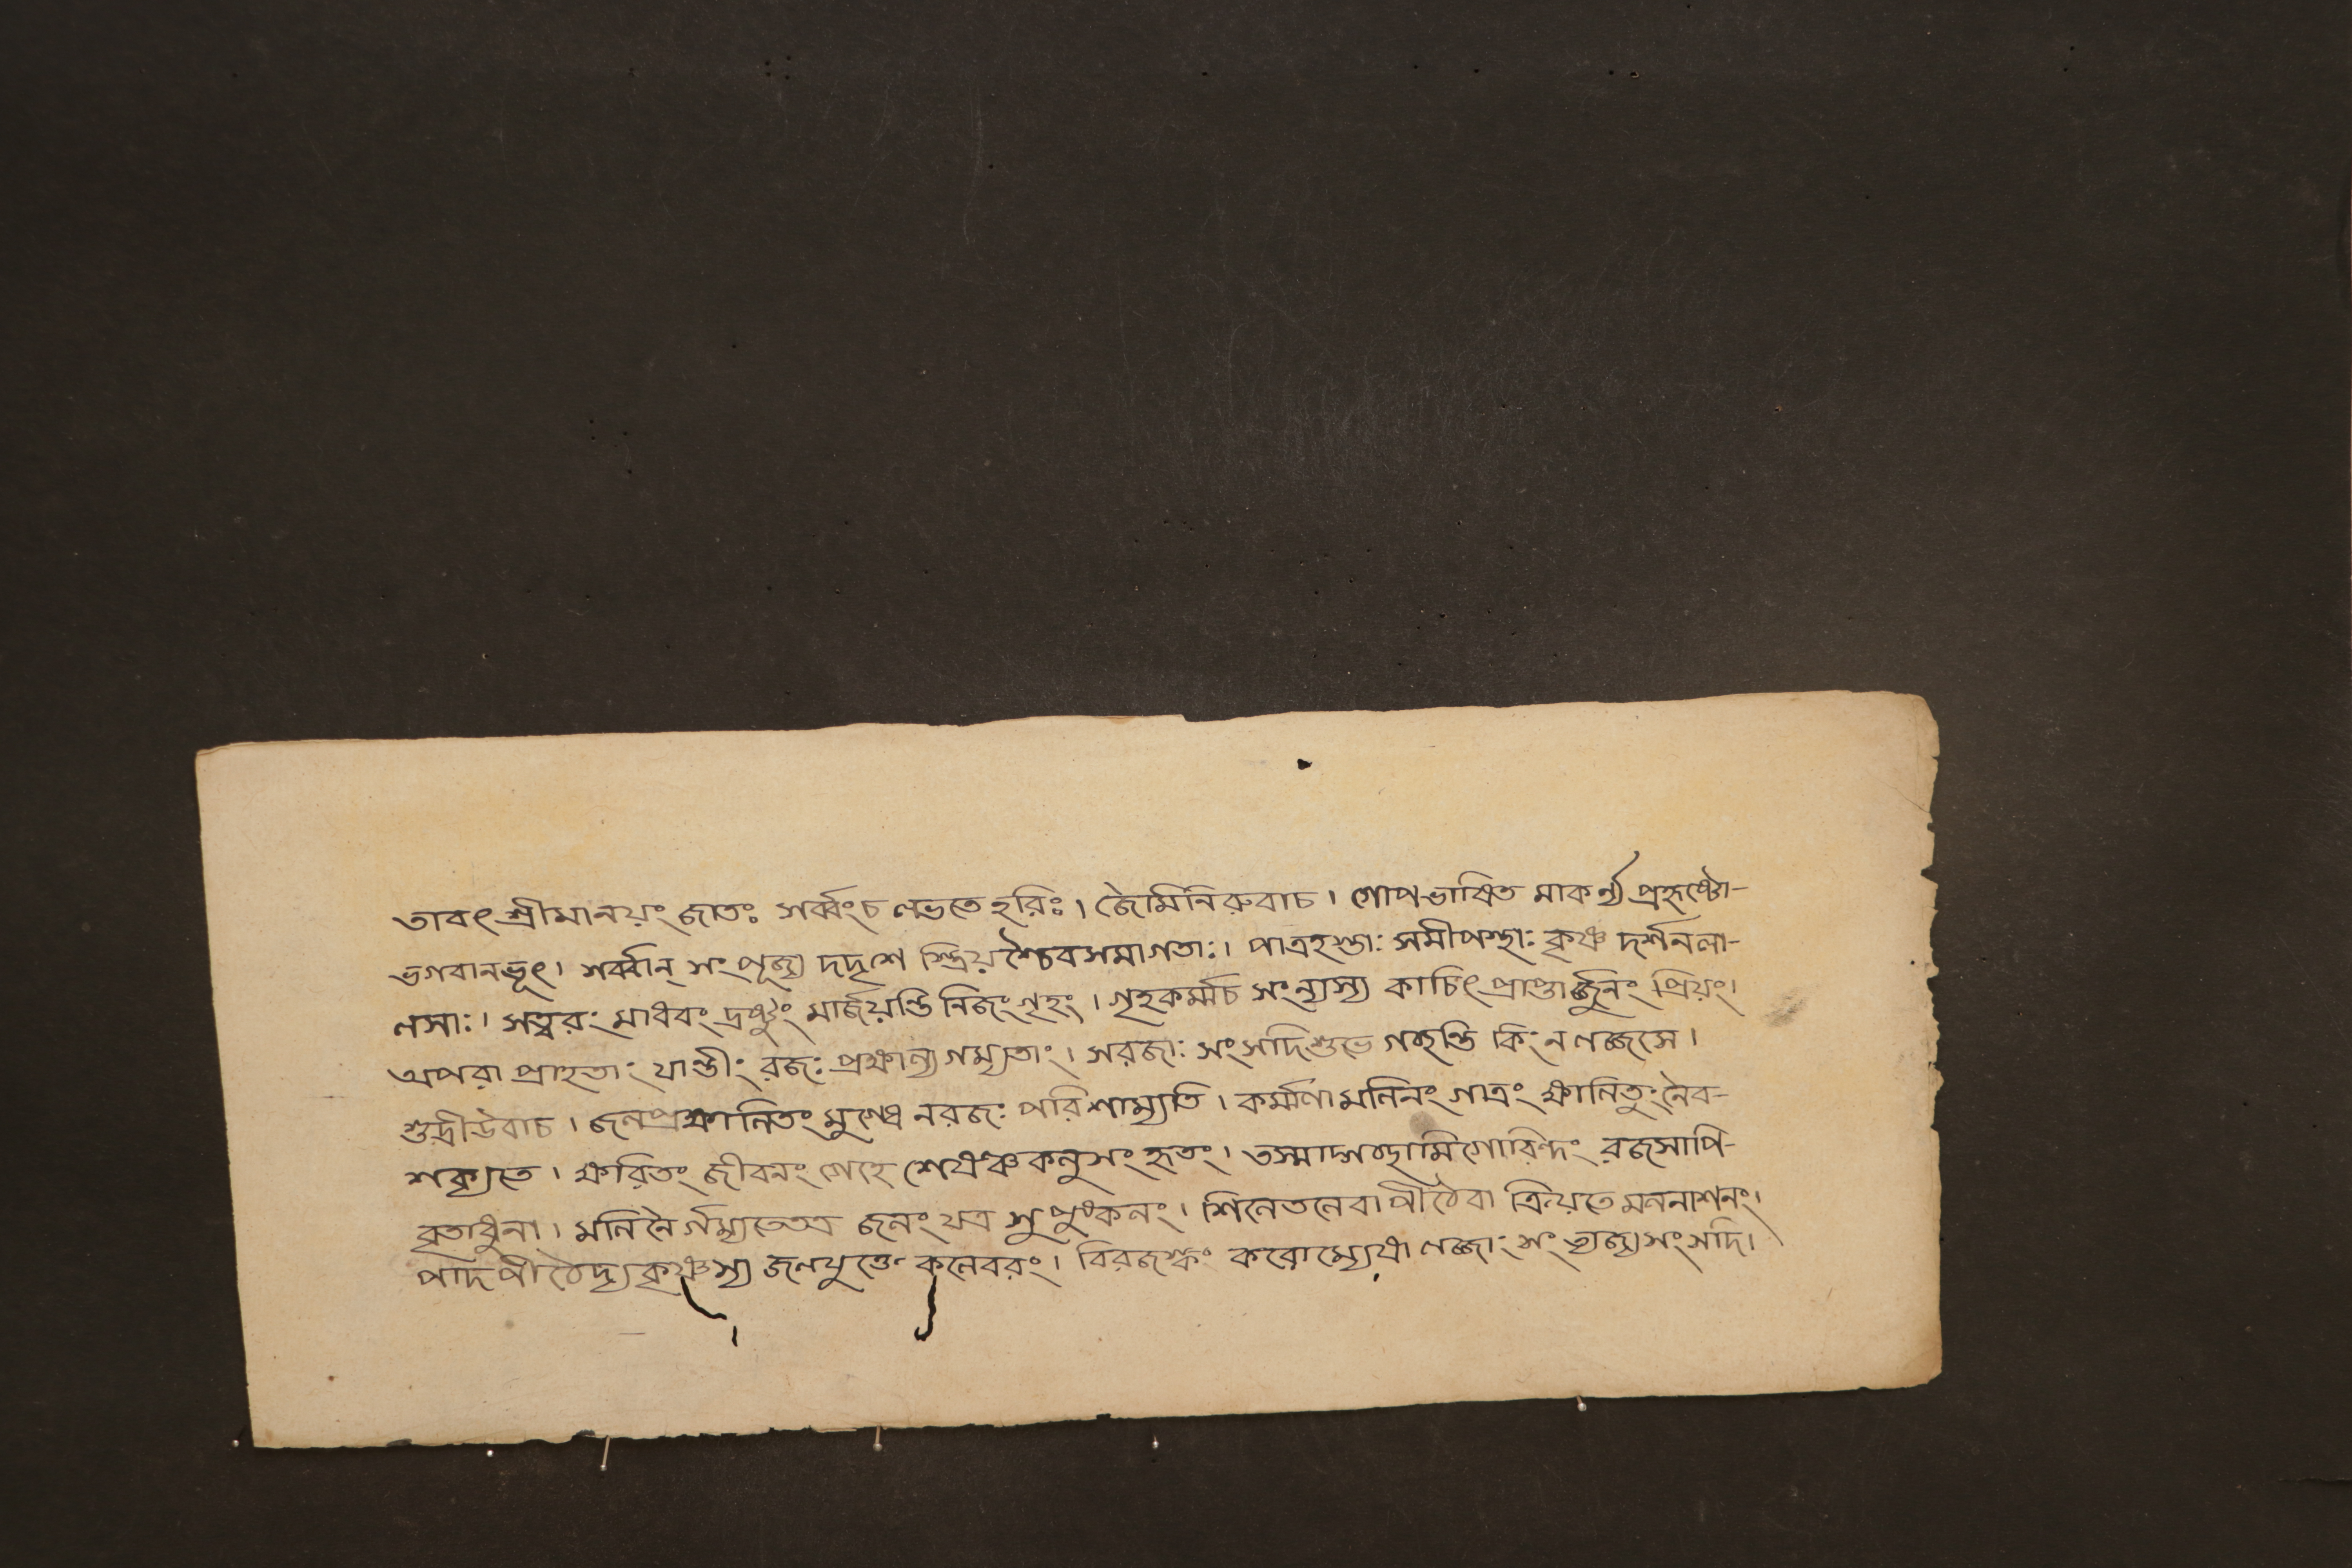 তাবৎ শ্রীমানয়ং জাতঃ সর্ব্বংচ লভতে হরিঃ। জৈমিনিরুবাচ। গোপভাষিত মাকর্ণ্য প্রহৃষ্টো-
ভগবানভূৎ। সর্ব্বান্ সংপূজ্য দদৃশে স্ত্রিয়শ্চৈবসমাগতাঃ। পাত্রহস্তাঃ সমীপস্থাঃ কৃষ্ণ দর্শনলা-
লসাঃ। সত্বরং মাধবং দ্রষ্টুং মার্জয়ন্তি নিজংগৃহং। গৃহকর্ম্মচ সংন্যস্য কাচিৎ প্রাপ্তার্জুনং প্রিয়ং।
অপরা প্রাহতাং যান্তীং রজঃ প্রক্ষাল্য গম্যতাং। সরজাঃ সংসদিশুভে গচ্ছন্তি কিং ন লজ্জসে।
শুদ্রীউবাচ। জলপ্রক্ষালিতং মুগ্ধে নরজঃ পরিশাম্যতি। কর্ম্মণা মলিনং গাত্রং ক্ষালিতুং নৈব-
শক্যতে। ক্ষরিতং জীবনং গেহে শেষঞ্চ কলুসংহৃতং। তস্মাদ্গচ্ছামিগোবিন্দং রজসাপি-
বৃতাধুনা। মলিনৈর্গম্যতেতত্র জলং যত্র সুপুষ্কলং। শিলেতলেবা পীঠেবা ক্রিয়তে মলনাশনং।
পাদপীঠেদ্যকৃষ্ণস্য জলযুক্তে কলেবরং। বিরজস্কং করোম্যেষা লজ্জাং সংত্যজ্যসংসদি।